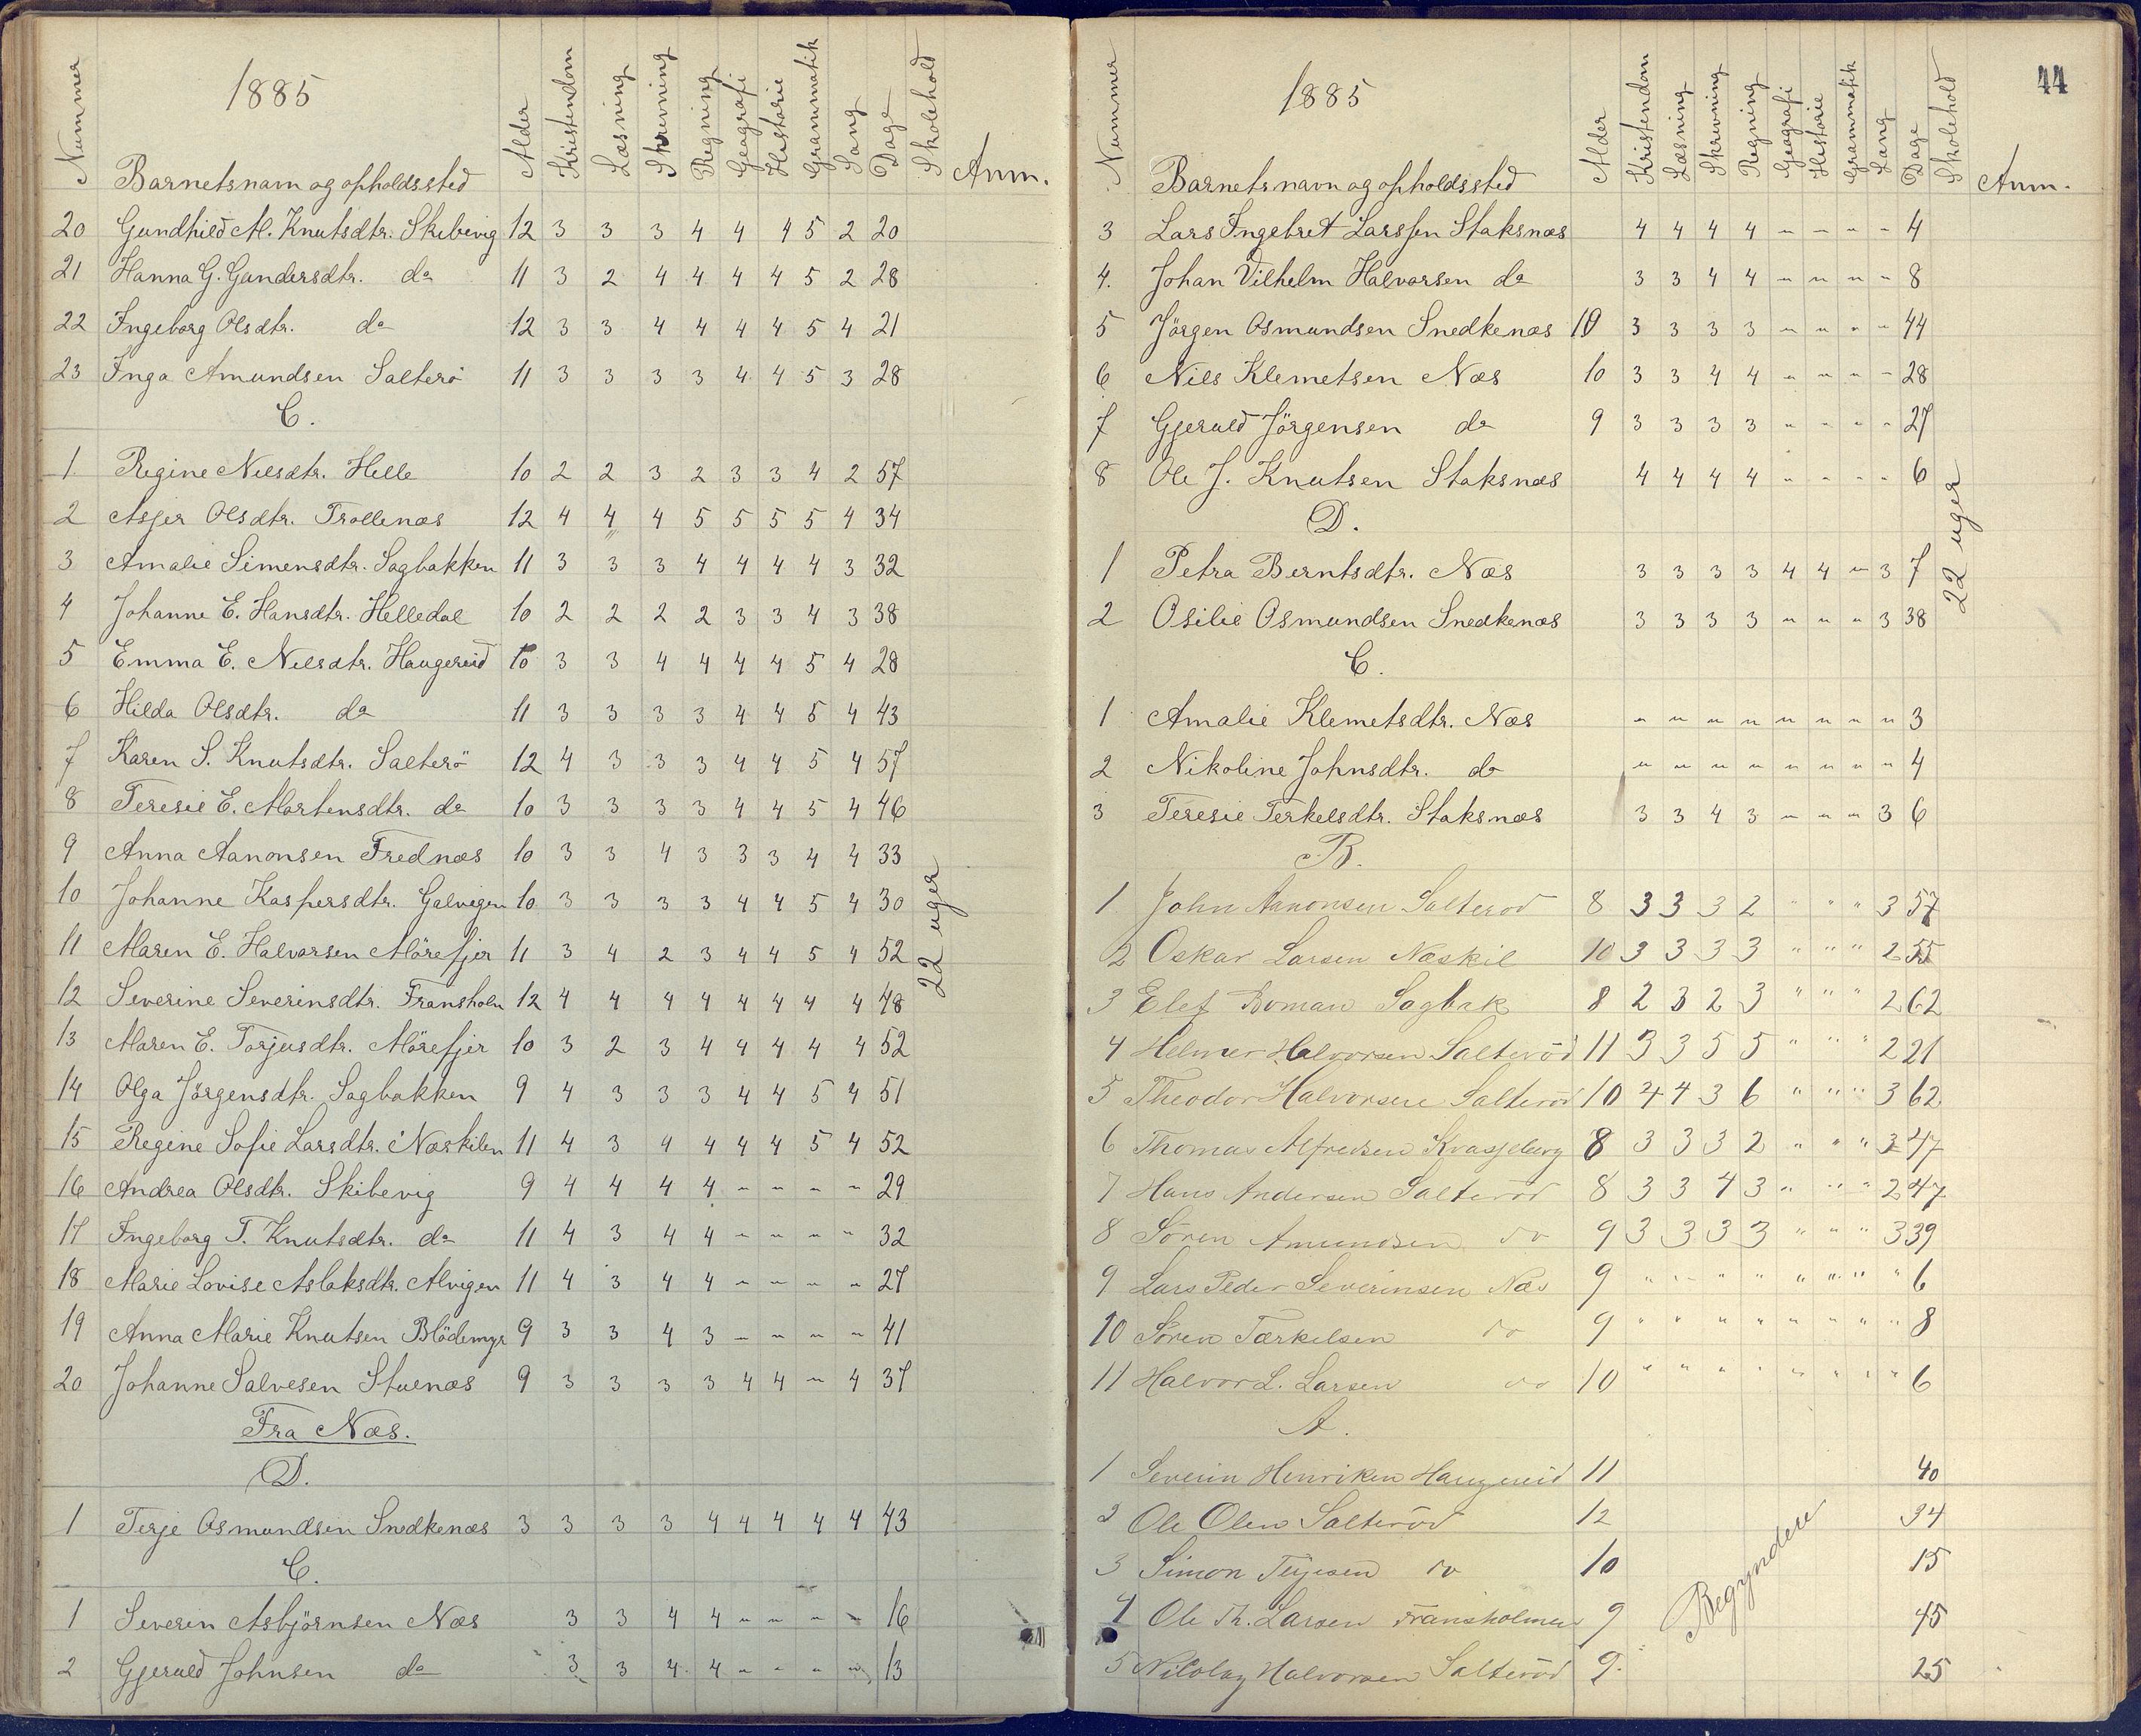 1885
Nummer Barnetsnavn og opholdssted Alder Kristendom Læsning Skrevning Regning Geografi Historie Grammatik Sang Dage Skolehold Anm.
20 Gundhild M. Knutsdtr. Skibevig 12 3 3 3 4 4 4 5 2 20
21 Hanna G. Gundersdtr. do 11 3 2 4 4 4 4 5 2 28
22 Ingeborg Olsdtr. do 12 3 3 4 4 4 4 5 4 21
23 Inga Amundsen Salterö 11 3 3 3 3 4 4 5 3 28
C.
1 Regine Nilsdtr. Helle 10 2 2 3 2 3 3 4 2 57
2 Asjer Olsdtr. Trollenæs 12 4 4 4 5 5 5 5 4 34
3 Amalie Simensdtr. Sagbakken 11 3 3 3 4 4 4 4 3 32
4 Johanne E. Hansdtr. Helledal 10 2 2 2 2 3 3 4 3 38
5 Emma E. Nilsdtr. Haugereid 10 3 3 4 4 4 4 5 4 28
6 Hilda Olsdtr. do 11 3 3 3 3 4 4 5 4 43
7 Karen S. Knutsdtr. Salterö 12 4 3 3 3 4 4 5 4 57
8 Teresie E. Mortensdtr. do 10 3 3 3 3 4 4 5 4 46
9 Anna Aanonsen Frednæs 10 3 3 4 3 3 3 4 4 33
10 Johanne Kaspersdtr. Galvigen 10 3 3 3 3 4 4 5 4 30
11 Maren E. Halvorsen Mörefjer 11 3 4 2 3 4 4 5 4 52
12 Severine Severinsdtr. Fransholm 12 4 4 4 4 4 4 4 4 48
22 uger
13 Maren E. Torjusdtr. Mörefjer 10 3 2 3 4 4 4 4 4 52
14 Olga Jörgensdtr. Sagbakken 9 4 3 3 3 4 4 5 4 51
15 Regine Sofie Larsdtr. Næskilen 11 4 3 4 4 4 4 5 4 52
16 Andrea Olsdtr. Skibevig 9 4 4 4 4 " " " " 29
17 Ingeborg T. Knutsdtr. do 11 4 3 4 4 " " " " 32
18 Marie Lovise Aslaksdtr. Alvigen 11 4 3 4 4 " " " " 27
19 Anna Marie Knutsen Blödemyr 9 3 3 4 3 " " " " 41
20 Johanne Salvesen Stuenæs 9 3 3 3 3 4 4 " 4 37
Fra Næs.
D.
1 Terje Osmundsen Snedkenæs 3 3 3 3 4 4 4 4 4 43
C.
1 Severin Asbjörnsen Næs 3 3 4 4 " " " " 16
2 Gjeruld Johnsen do 3 3 4 4 " " " " 13
44
1885
Nummer Barnetsnavn og opholdssted Alder Kristendom Læsning Skrevning Regning Geografi Historie Grammatik Sang Dage Skolehold Anm.
3 Lars Ingebret Larssen Staksnæs 4 4 4 4 " " " " 4
4. Johan Vilhelm Halvorsen do 3 3 4 4 " " " " 8
5 Jörgen Osmundsen Snedkenæs 10 3 3 3 3 " " " " 44
6 Nils Klemetsen Næs 10 3 3 4 4 " " " " 28
7 Gjeruld Jörgensen do 9 3 3 3 3 " " " " 27
8 Ole J. Knutsen Staksnæs 4 4 4 4 " " " " 6
D.
22 uger
1 Petra Berntsdtr. Næs 3 3 3 3 4 4 " 3 7
2 Osilie Osmundsen Snedkenæs 3 3 3 3 " " " 3 38
C.
1 Amalie Klemetsdtr. Næs " " " " " " " " 3
2 Nikoline Johnsdtr. do " " " " " " " " 4
3 Teresie Terkelsdtr. Staksnæs 3 3 4 3 " " " 3 6
B.
1 John Aanonsen Salteröd 8 3 3 3 2 " " " 3 57
2 Oskar Larsen Næskil 10 3 3 3 3 " " " 2 55
3 Elef Roman Sagbak 8 2 3 2 3 " " " 2 62
4 Helmer Halvorsen Salteröd 11 3 3 5 5 " " " 2 21
5 Theodor Halvorsen Salteröd 10 4 4 3 6 " " " 3 62
6 Thomas Alfredsen 8 3 3 3 2 " " " 3 47
7 Hans Andersen Salteröd 8 3 3 4 3 " " " 2 47
8 Sören Amundsen do 9 3 3 3 3 " " " 3 39
9 Lars Peder Severinsen Næs 9 " " " " " " " " 6
10 Sören Tærkelsen do 9 " " " " " " " " 8
11 Halvor L. Larsen do 10 " " " " " " " " 6
A.
1 Severin Henriksen Haugereid 11 40
2 Ole Olsen Salteröd 12 34
3 Simon Terjesen do 10 15
Begyndere
4 Ole Th. Larsen Fransholmen 9 45
5 Nicolay Halvorsen Salteröd 9 25